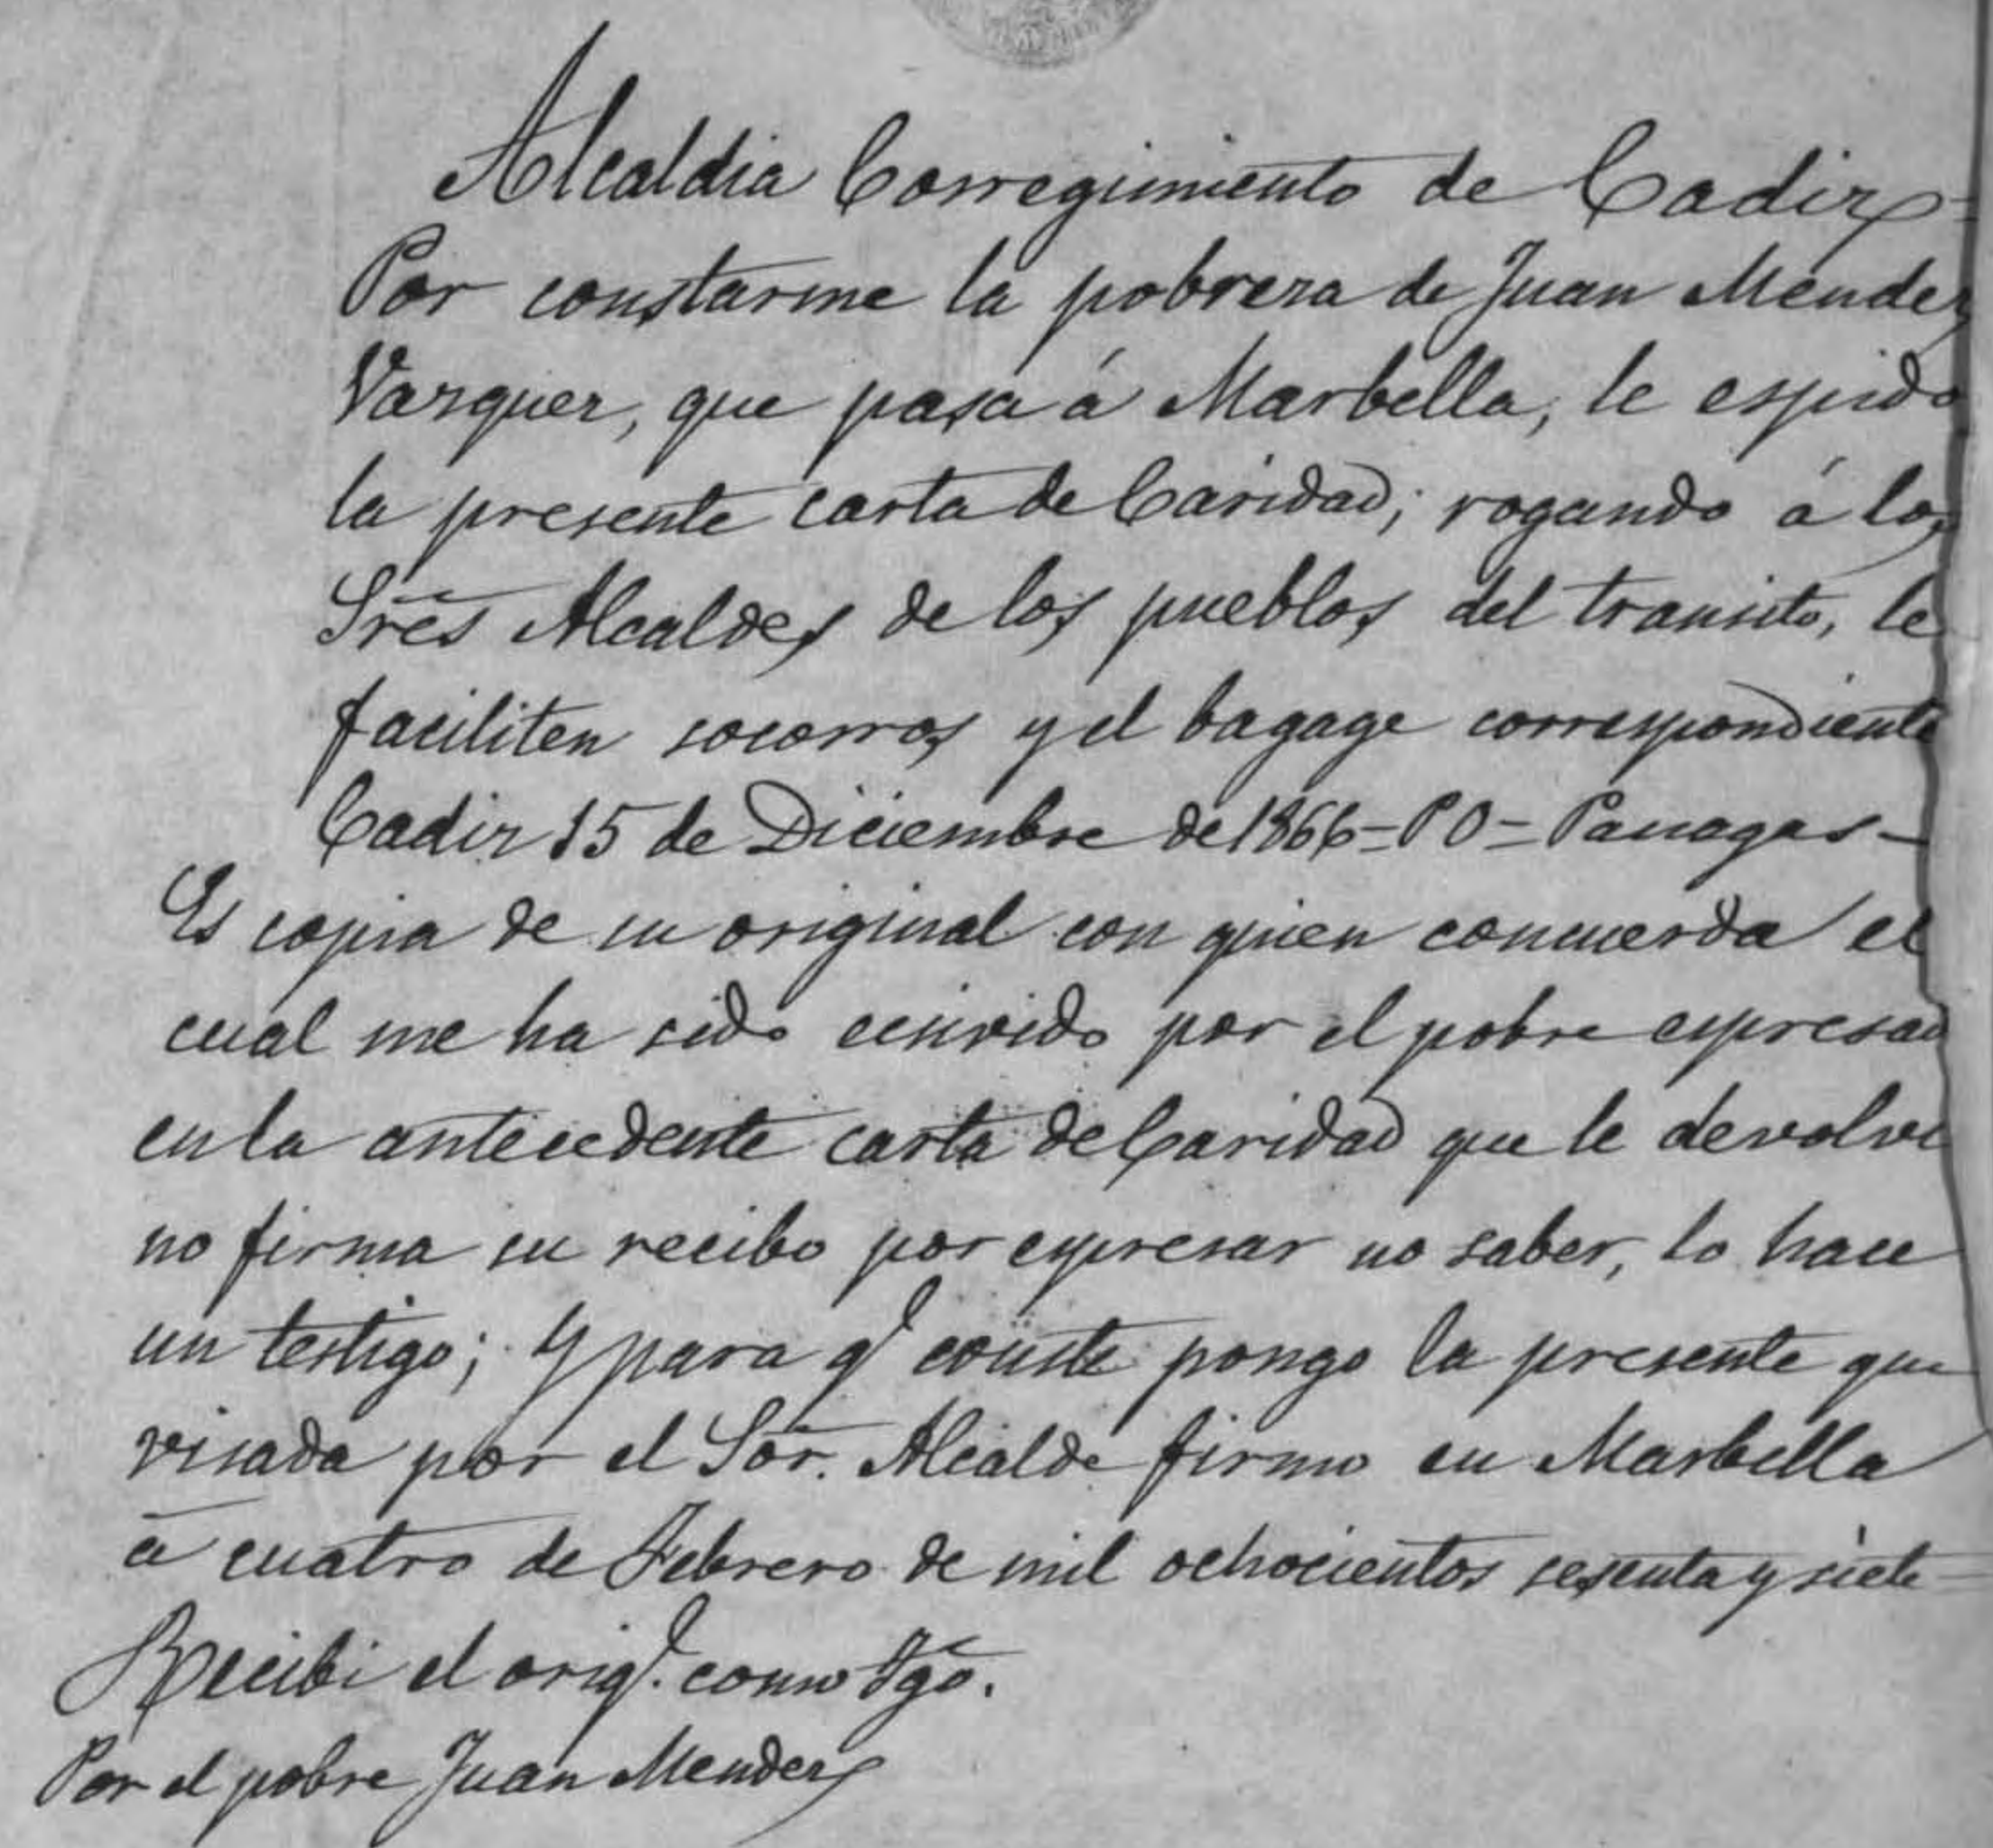 Alcaldia Corregimiento de Cadiz=
Por constarme la pobreza de Juan Mendez
Vazquez, que pasa á Marbella, le espido
la presente carta de Caridad; rogando á los
Sres Alcaldes de los pueblos del transito, le
faciliten socorros y el bagage correspondiente
Cadiz 15 de Diciembre de 1866=PO=Panagas-
Es copia de su original con quien concuerda el
cual me ha sido por el pobre espresad
en la antecedente carta de Caridad que le devolvi
no firma su recibo por espresar no saber, lo hace
un testigo; Y para q.e conste pongo la presente que
visada por el Sor. Alcalde firmo en Marbella
a cuatro de Febrero de mil ochocientos sesenta y siete=
Recibi el orig.l como tgo.
Por el pobre Juan Mendez